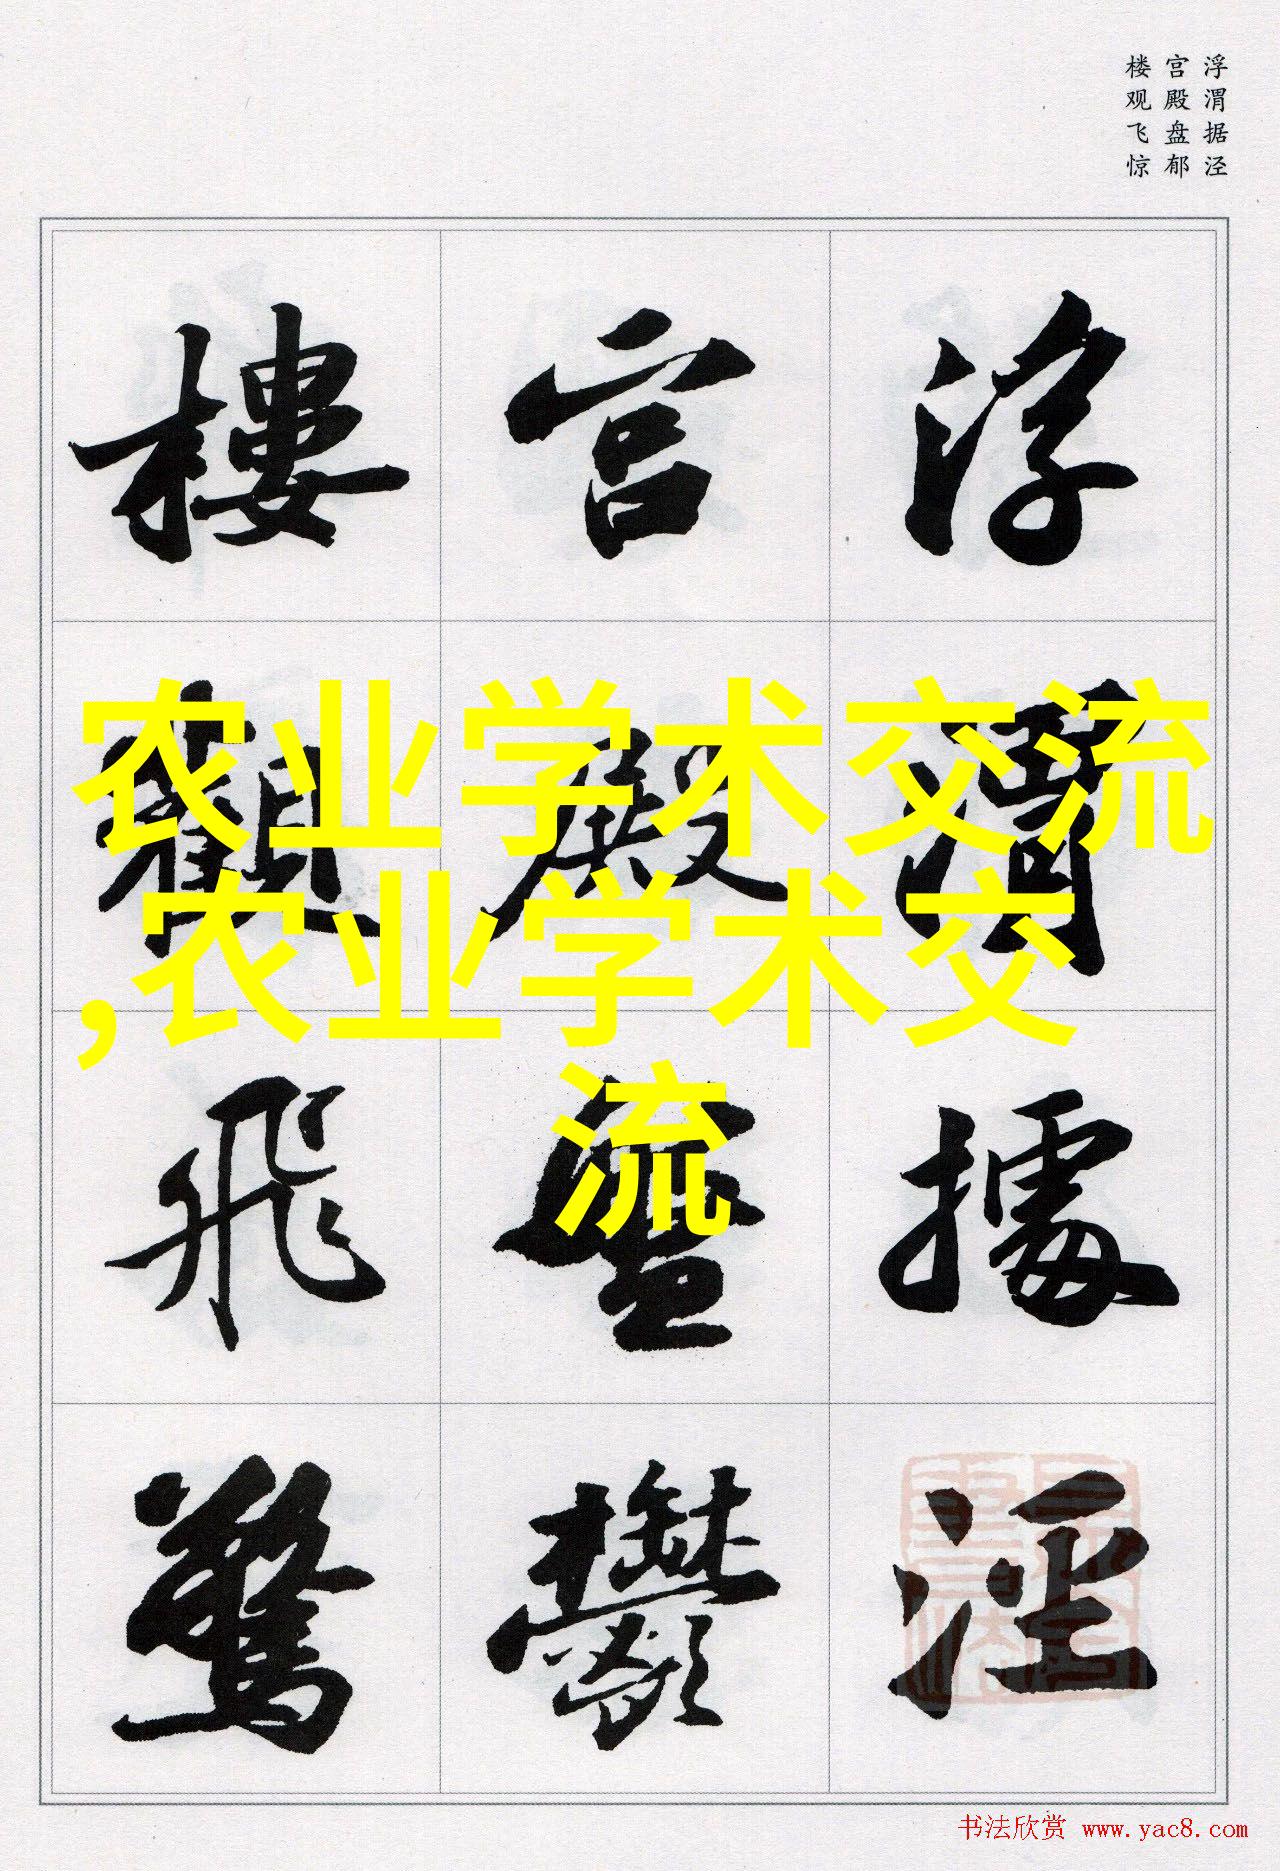 浮渭据泾
宫殿盘郁
楼观飞惊
浮渭據涇
宫殿盤鬱
樓觀飛驚
农业学术交流
,农业学术交
流
书法欣赏 www.yac8.com